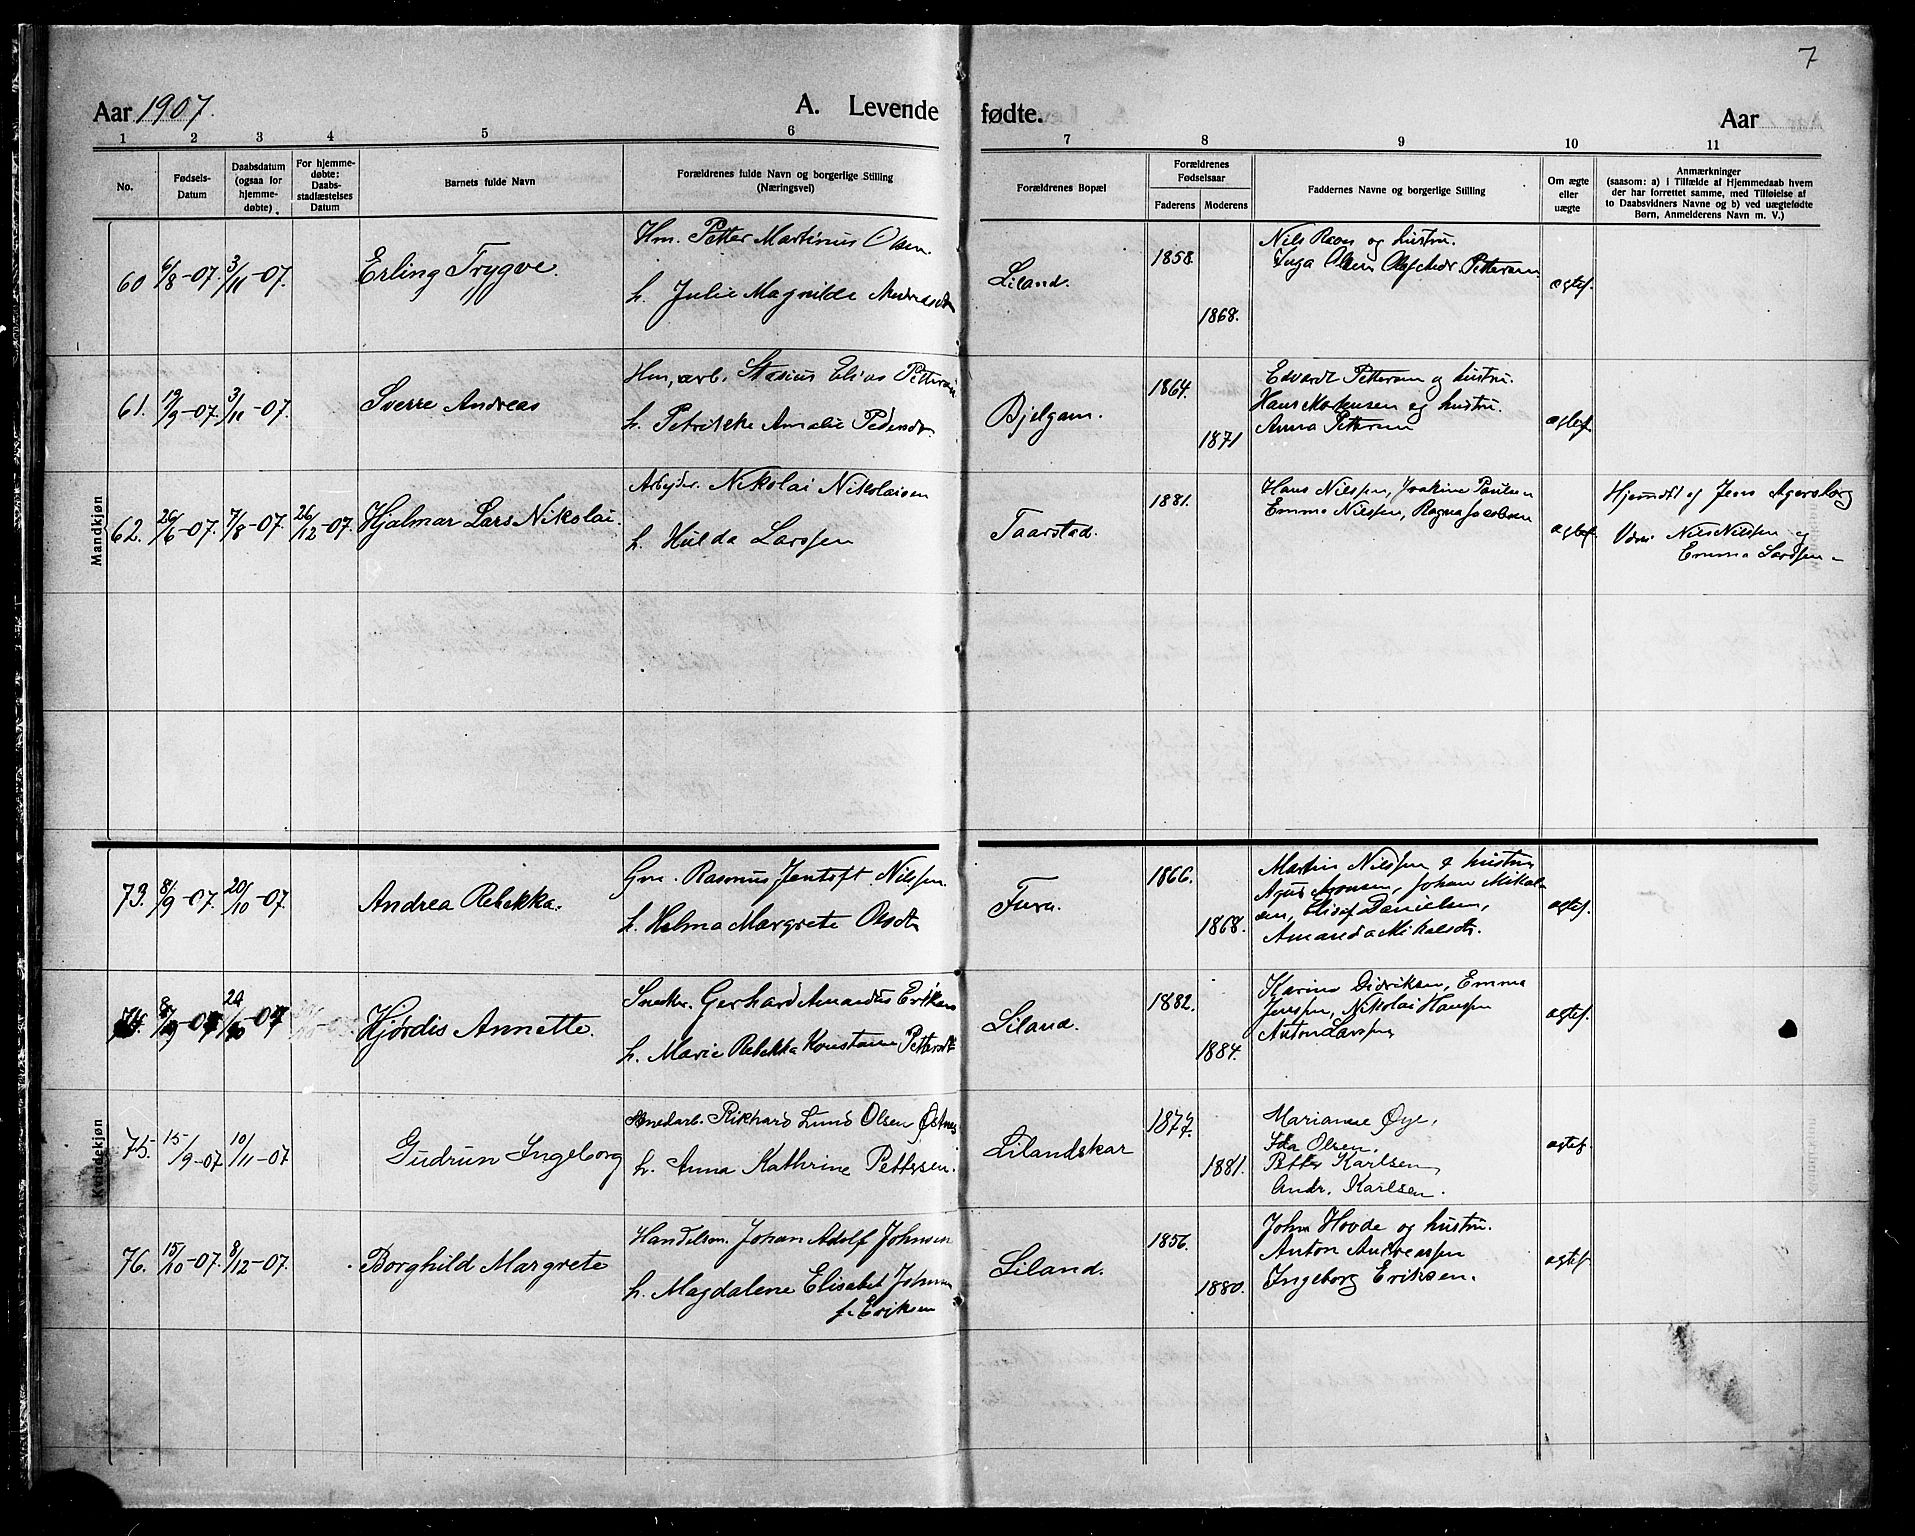 7
Aar 1907. A. Levende fødte. Aar
1 2 3 4 5 6 7 8 9 10 11
No.
Fødsels-
Datum
Daabsdatum
(ogsaa for
hjemme-
døbte)
For hjemme-
døbte:
Daabs-
stadfæstelses
Datum
Barnets fulde Navn
Forældrenes fulde Navn og borgerlige Stilling
(Næringsvei)
Forældrenes Bopæl
Forældrenes
Fødselsaar
Faderens Moderens
Faddernes Navne og borgerlige Stilling
Om ægte
eller
uægte
Anmærkninger
(saasom: a) i Tilfælde af Hjemmedaab hvem
der har forrettet samme, med Tilføielse af
to Daabsvidners Navne og b) ved uægtefødte
Børn, Anmelderens Navn m. V.)
Mandkjøn
60 6/8-07. 3/11-07. Erling Trygve.
Hm. Petter Martinus Olsen.
h. Julie Magnilde Andreasdt
Liland.
1858.
1868.
Nils Ravn og hustru.
Inga Olsen Pettersen
ægtef.
61. 19/9-07. 3/11-07. Sverre Andreas
Hm, arb. Stasius Elias Pettersen
h. Petrikke Amalie Pedersdt.
Bjelgam.
1864.
1871
Edvardt Pettersen og hustru.
Hans Mortensen og hustru.
Anna Pettersen
ægtef.
62. 26/6-07. 7/8-07. 26/12-07. Hjalmar Lars Nikolai.
Arbejder. Nikolai Nikolaisen
h. Hulda Larssen
Taarstad.
1881.
Hans Nilssen, Joakine Paulsen
Emma Nilssen, Ragna Jacobsen
ægtef.
Hjemdt af Jens Agersborg
Vidner Nils Nilssen og
Emma Larssen
Kvindekjøn
73. 8/9-07. 20/10-07. Andrea Rebekka.
Gm. Rasmus Jentoft Nilssen.
h. Helma Margrete Olsdt
Furu.
1866.
1868.
Martin Nilssen & hustru
Johan Mikal-
sen, Danielsen,
Amanda Mikalsdt.
ægtef.
74. 8/9-07 20/10-07 Hjørdis Annette.
Snedker. Gerhard Amandus Eriksen
h. Marie Rebekka Konstanse Pettersdt
Liland.
1882.
1884.
Karine Didriksen, Emma
Jenssen, Nikolai Hanssen
Anton Larssen
ægtef.
75. 15/9-07 10/11-07 Gudrun Ingeborg
Smedarb. Rikhard Lund Olsen Østnes
h. Anna Kathrine Pettersen.
Lilandskar
1877.
1881.
Marianne Øye,
Ida Olsen.
Petter Karlsen
Andr. Karlsen.
ægtef.
76. 15/10-07. 8/12-07. Borghild Margrete
Handelsm. Johan Adolf Johnsen
h. Magdalene Elisabet Johnsen
f. Eriksen
Liland.
1856.
1880.
John Hovde og hustru.
Anton Andreassen
Ingeborg Eriksen.
ægtef.